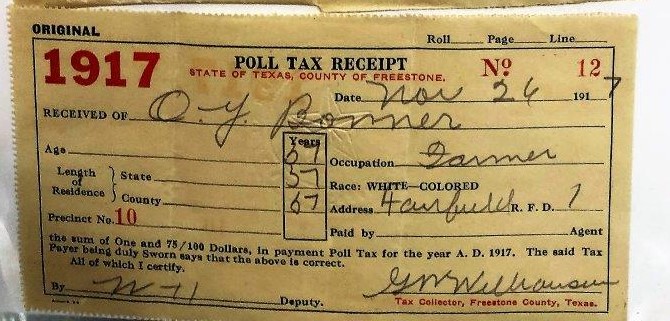 ORIGINAL
Roll Page Line
1917 POLL TAX RECEIPT No 12
STATE OF TEXAS, COUNTY OF FREESTONE.
Date Nov 26 1917
RECEIVED OF O. Y. Bonner
Years
Age 57 Occupation Farmer
Length of Residence } State 57 Race: WHITE—COLORED
County 57 Address Fairfield R. F. D. 1
Precinct No. 10 Paid by Agent
the sum of One and 75/100 Dollars, in payment Poll Tax for the year A. D. 1917. The said Tax
Payer being duly Sworn says that the above is correct.
All of which I certify.
By Deputy.
Tax Collector, Freestone County, Texas.